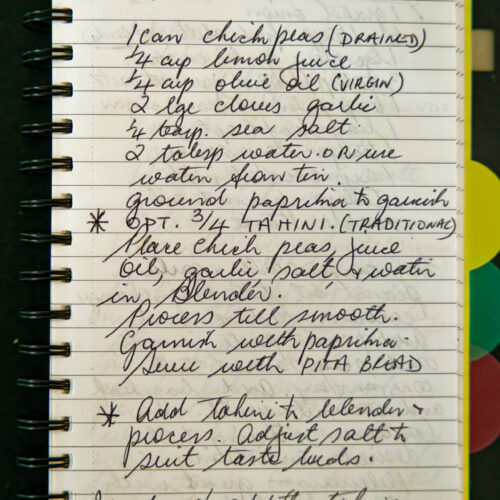 1 can chick peas (DRAINED)
1/4 cup lemon juice
1/4 cup olive oil (VIRGIN)
2 lge cloves garlic
1/4 teasp. sea salt.
2 tablesp water. OR use
water from tin.
ground paprika to garnish
* OPT. 3/4 TAHINI. (TRADITIONAL)
Place chick peas, juice
Oil, garlic salt & water
in Blender.
Process till smooth.
Garnish with paprika.
Serve with PITA BREAD
* Add tahini to blender &
process. Adjust salt to
suit taste buds.